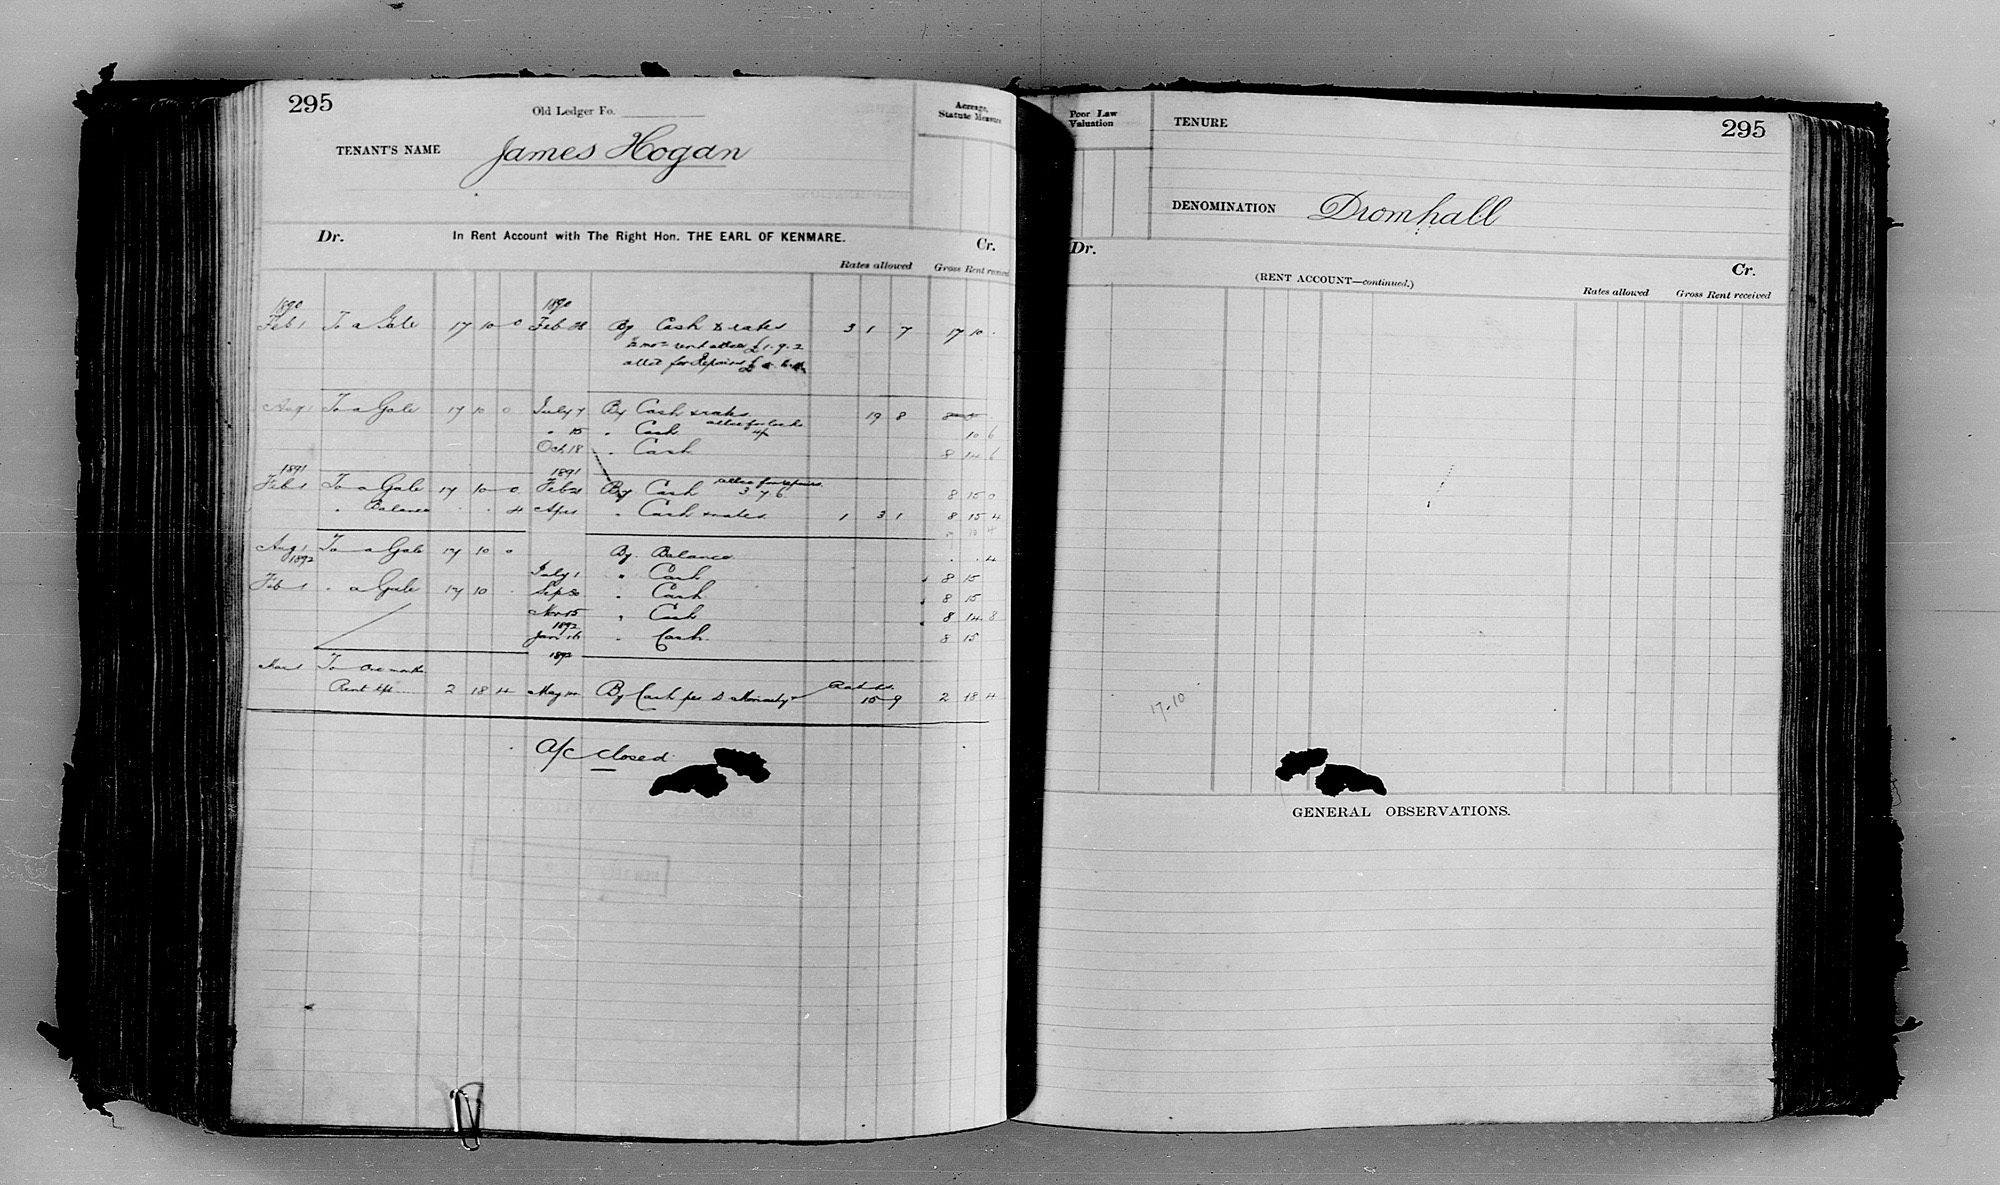 295
Old Ledger Fo.
TENANT'S NAME James Hogan
Acreage, Statute Measure
Dr. In Rent Account with The Right Hon. THE EARL OF KENMARE. Cr.
Rates allowed Gross Rent received
1890 1890
Feb 1 To a Gale 17 10 0 Feb 28 By Cash & rates 3 1 7 17 10
rent £1.9.2
for Repairs £
Aug 1 To a Gale 17 10 0 July 7 By Cash & rates 19 8
" 15 " Cash 10 6
Oct 18 " Cash 8 14 6
1891 1891
Feb 1 To a Gale 17 10 0 Feb 21 By Cash for repairs 3 7 6 8 15 0
" Balance 4 Apr 1 " Cash & rates 1 3 1 8 15 4
Aug 1 To a Gale 17 10 0 By Balance 4
1892 July 1 " Cash 8 15
Feb 1 " a Gale 17 10 Sep 30 " Cash 8 15
Nov 15 " Cash 8 14 8
1892
Jan 16 " Cash 8 15
1892
Mar 1 To One month
Rent 2 18 4 May By Cash per D Moriarty 15 9 2 18 4
a/c closed
Poor Law Valuation
TENURE
295
DENOMINATION Dromhall
Dr. Cr.
(RENT ACCOUNT—continued.)
Rates allowed Gross Rent received
17-10
GENERAL OBSERVATIONS.